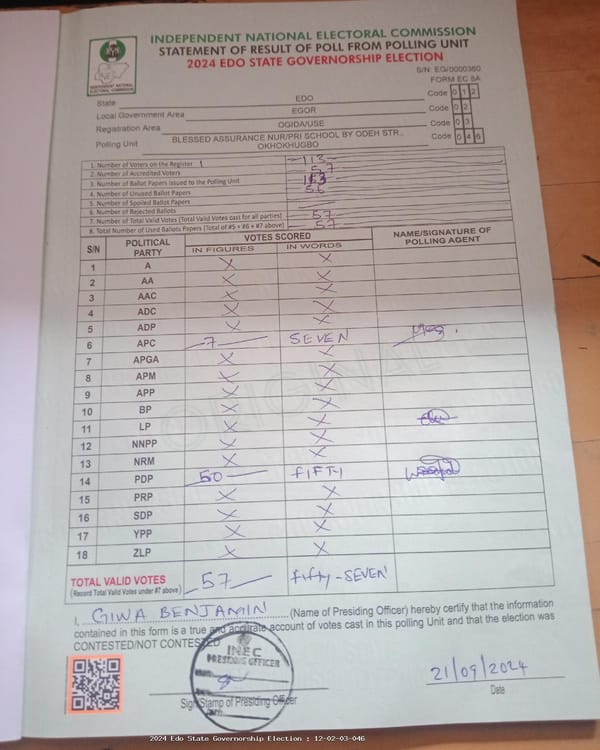 INDEPENDENT NATIONAL ELECTORAL COMMISSION
STATEMENT OF RESULT OF POLL FROM POLLING UNIT
2024 EDO STATE GOVERNORSHIP ELECTION
S/N: EG/0000360
FORM EC 8A
INDEPENDENT NATIONAL ELECTORAL COMMISSION
State EDO Code 0 1 2
Local Government Area EGOR Code 0 2
Registration Area OGIDA/USE Code 0 3
Polling Unit BLESSED ASSURANCE NUR/PRI SCHOOL BY ODEH STR., OKHOKHUGBO Code 0 4 6
1. Number of Voters on the Register 113
2. Number of Accredited Voters 57
3. Number of Ballot Papers Issued to the Polling Unit 113
4. Number of Unused Ballot Papers 56
5. Number of Spoiled Ballot Papers
6. Number of Rejected Ballots
7. Number of Total Valid Votes (Total Valid Votes cast for all parties) 57
8. Total Number of Used Ballots Papers (Total of #5 + #6 + #7 above) 57
S/N POLITICAL PARTY VOTES SCORED NAME/SIGNATURE OF POLLING AGENT
IN FIGURES IN WORDS
1 A X X
2 AA X X
3 AAC X X
4 ADC X X
5 ADP X X
6 APC 7 SEVEN
7 APGA X X
8 APM X X
9 APP X X
10 BP X X
11 LP X X
12 NNPP X X
13 NRM X X
14 PDP 50 FIFTY
15 PRP X X
16 SDP X X
17 YPP X X
18 ZLP X X
ORIGINAL
TOTAL VALID VOTES 57 Fifty-SEVEN
(Record Total Valid Votes under #7 above)
I, GIWA BENJAMIN (Name of Presiding Officer) hereby certify that the information
contained in this form is a true and accurate account of votes cast in this polling Unit and that the election was
CONTESTED/NOT CONTESTED
INEC
PRESIDING OFFICER
21/09/2024
Sign/Stamp of Presiding Officer Date
2024 Edo State Governorship Election : 12-02-03-046